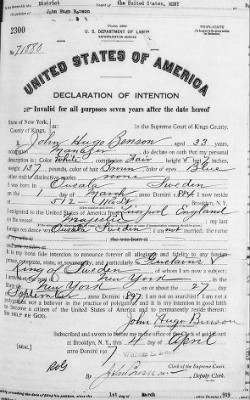 District
the United States, EDNY
John Hugo Benson
TRIPLICATE
2300
U. S. DEPARTMENT OF LABOR
NATURALIZATION SERVICE
No. 71880
UNITED STATES OF AMERICA
DECLARATION OF INTENTION
Invalid for all purposes seven years after the date hereof
State of New York,
County of Kings,
In the Supreme Court of Kings County.
I, John Hugo Benson aged 33 years,
occupation Manager do declare on oath that my personal
description is: Color White complexion Fair height
weight 157 pounds, color of hair Brown color of eyes Blue
other visible distinctive marks none
I was born in Sweden
on the 1 day of March anno Domini 1884 I now reside
at 512 Brooklyn, N. Y.
I emigrated to the United States of America from Liverpool England
on the vessel Majestic my last
foreign residence was Sweden I am not married, the name
It is my bona fide intention to renounce forever all allegiance and fidelity to any foreign
prince, potentate, state, or sovereignty, and particularly to Gustavus V
King of Sweden of whom I am now a subject
I arrived at the port of New York
of New York on or about the 27 day
September anno Domini 1897; I am not an anarchist; I am not a
polygamist nor a believer in the practice of polygamy; and it is my intention in good faith
to become a citizen of the United States of America and to permanently reside therein:
SO HELP ME GOD.
John Hugo Benson
Subscribed and sworn to before me in the office of the Clerk of said Court
at Brooklyn, N. Y., this 4 day of April
anno Domini 19
Clerk of the Supreme Court.
By Deputy Clerk.
1st March 919